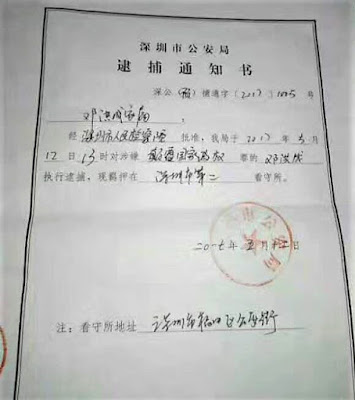 深圳市公安局
逮捕通知书
深公 捕通字〔2017〕 号
邓洪成家属：
经 深圳市人民检察院 批准，我局于 2017 年 5 月
12 日 13 时对涉嫌 颠覆国家政权 罪的 邓洪成
执行逮捕，现羁押在 深圳市第二 看守所。
二〇一七年 五 月十二日
注：看守所地址 深圳市福田区